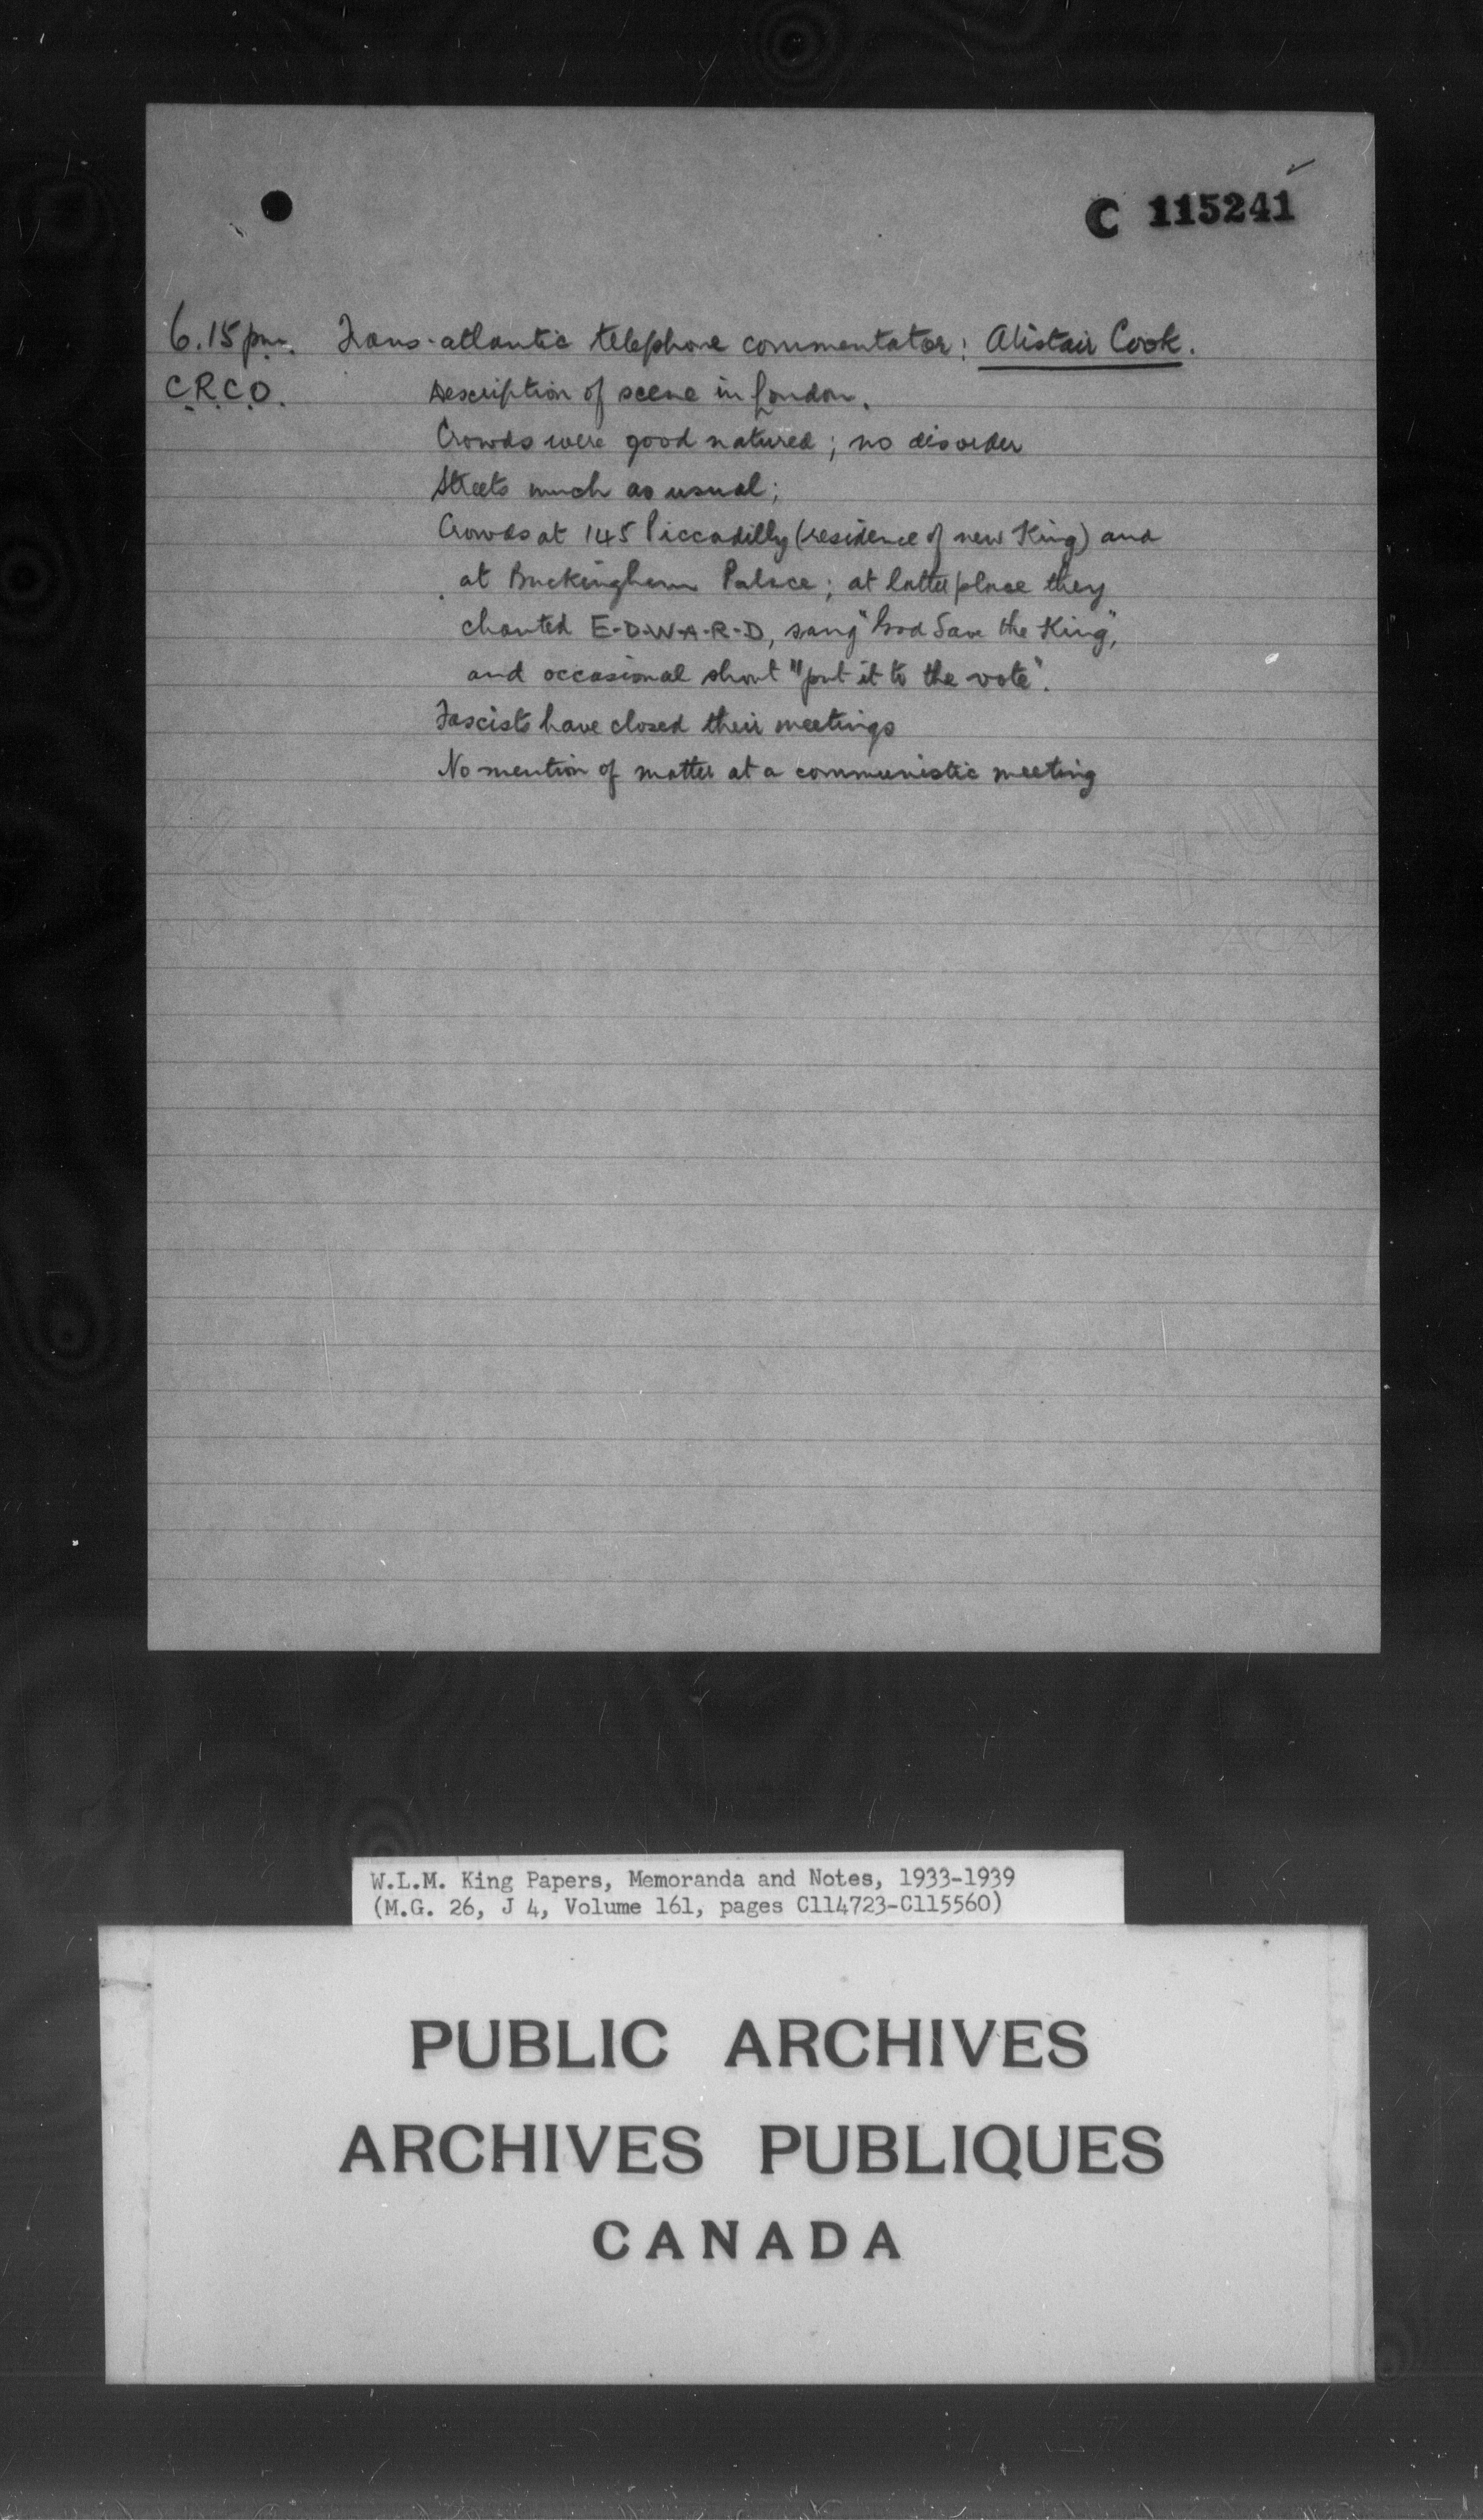 C 115241
6.15 pm. Trans-atlantic telephone commentator: Alistair Cook.
C.R.C.O. Description of scene in London.
Crowds were good natured; no disorder
Streets much as usual;
Crowds at 145 Piccadilly (residence of new King) and
at Buckingham Palace; at latter place they
chanted E-D-W-A-R-D, sang "God Save the King",
and occasional shout "put it to the vote".
Fascists have closed their meetings
No mention of matter at a communistic meeting
W.L.M. King Papers, Memoranda and Notes, 1933-1939
(M.G. 26, J 4, Volume 161, pages C114723-C115560)
PUBLIC ARCHIVES
ARCHIVES PUBLIQUES
CANADA